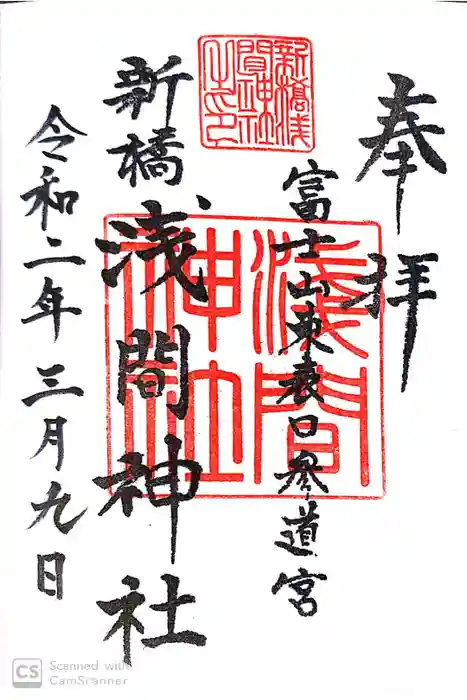 奉拝
富士山東表口参道宮
新橋浅
間神社
之印
浅間
神社
新橋
浅間神社
令和二年三月九日
CS
Scanned with
CamScanner